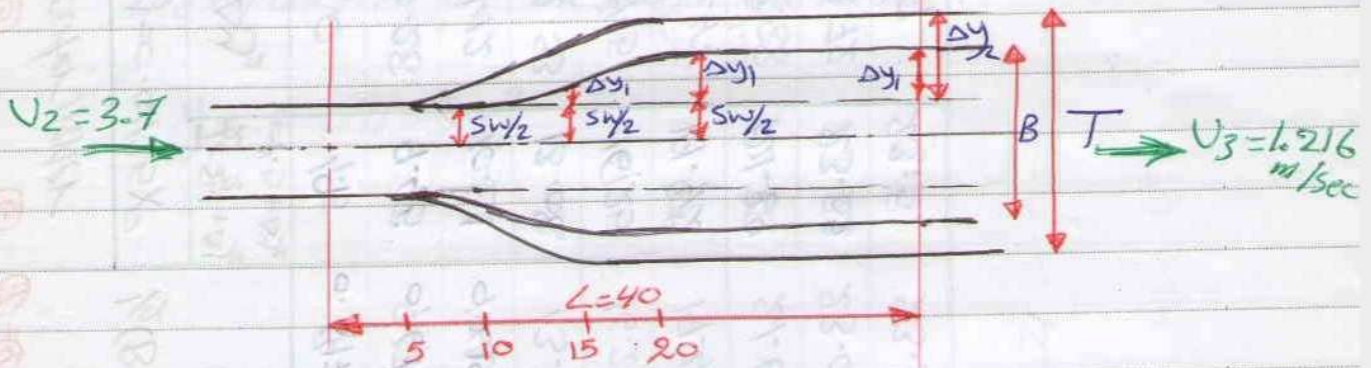 Δy/2
Δy1 Δy1 Δy1
U2=3.7 Sw/2 Sw/2 Sw/2 B T U3=1.216
m/sec
L=40
5 10 15 20